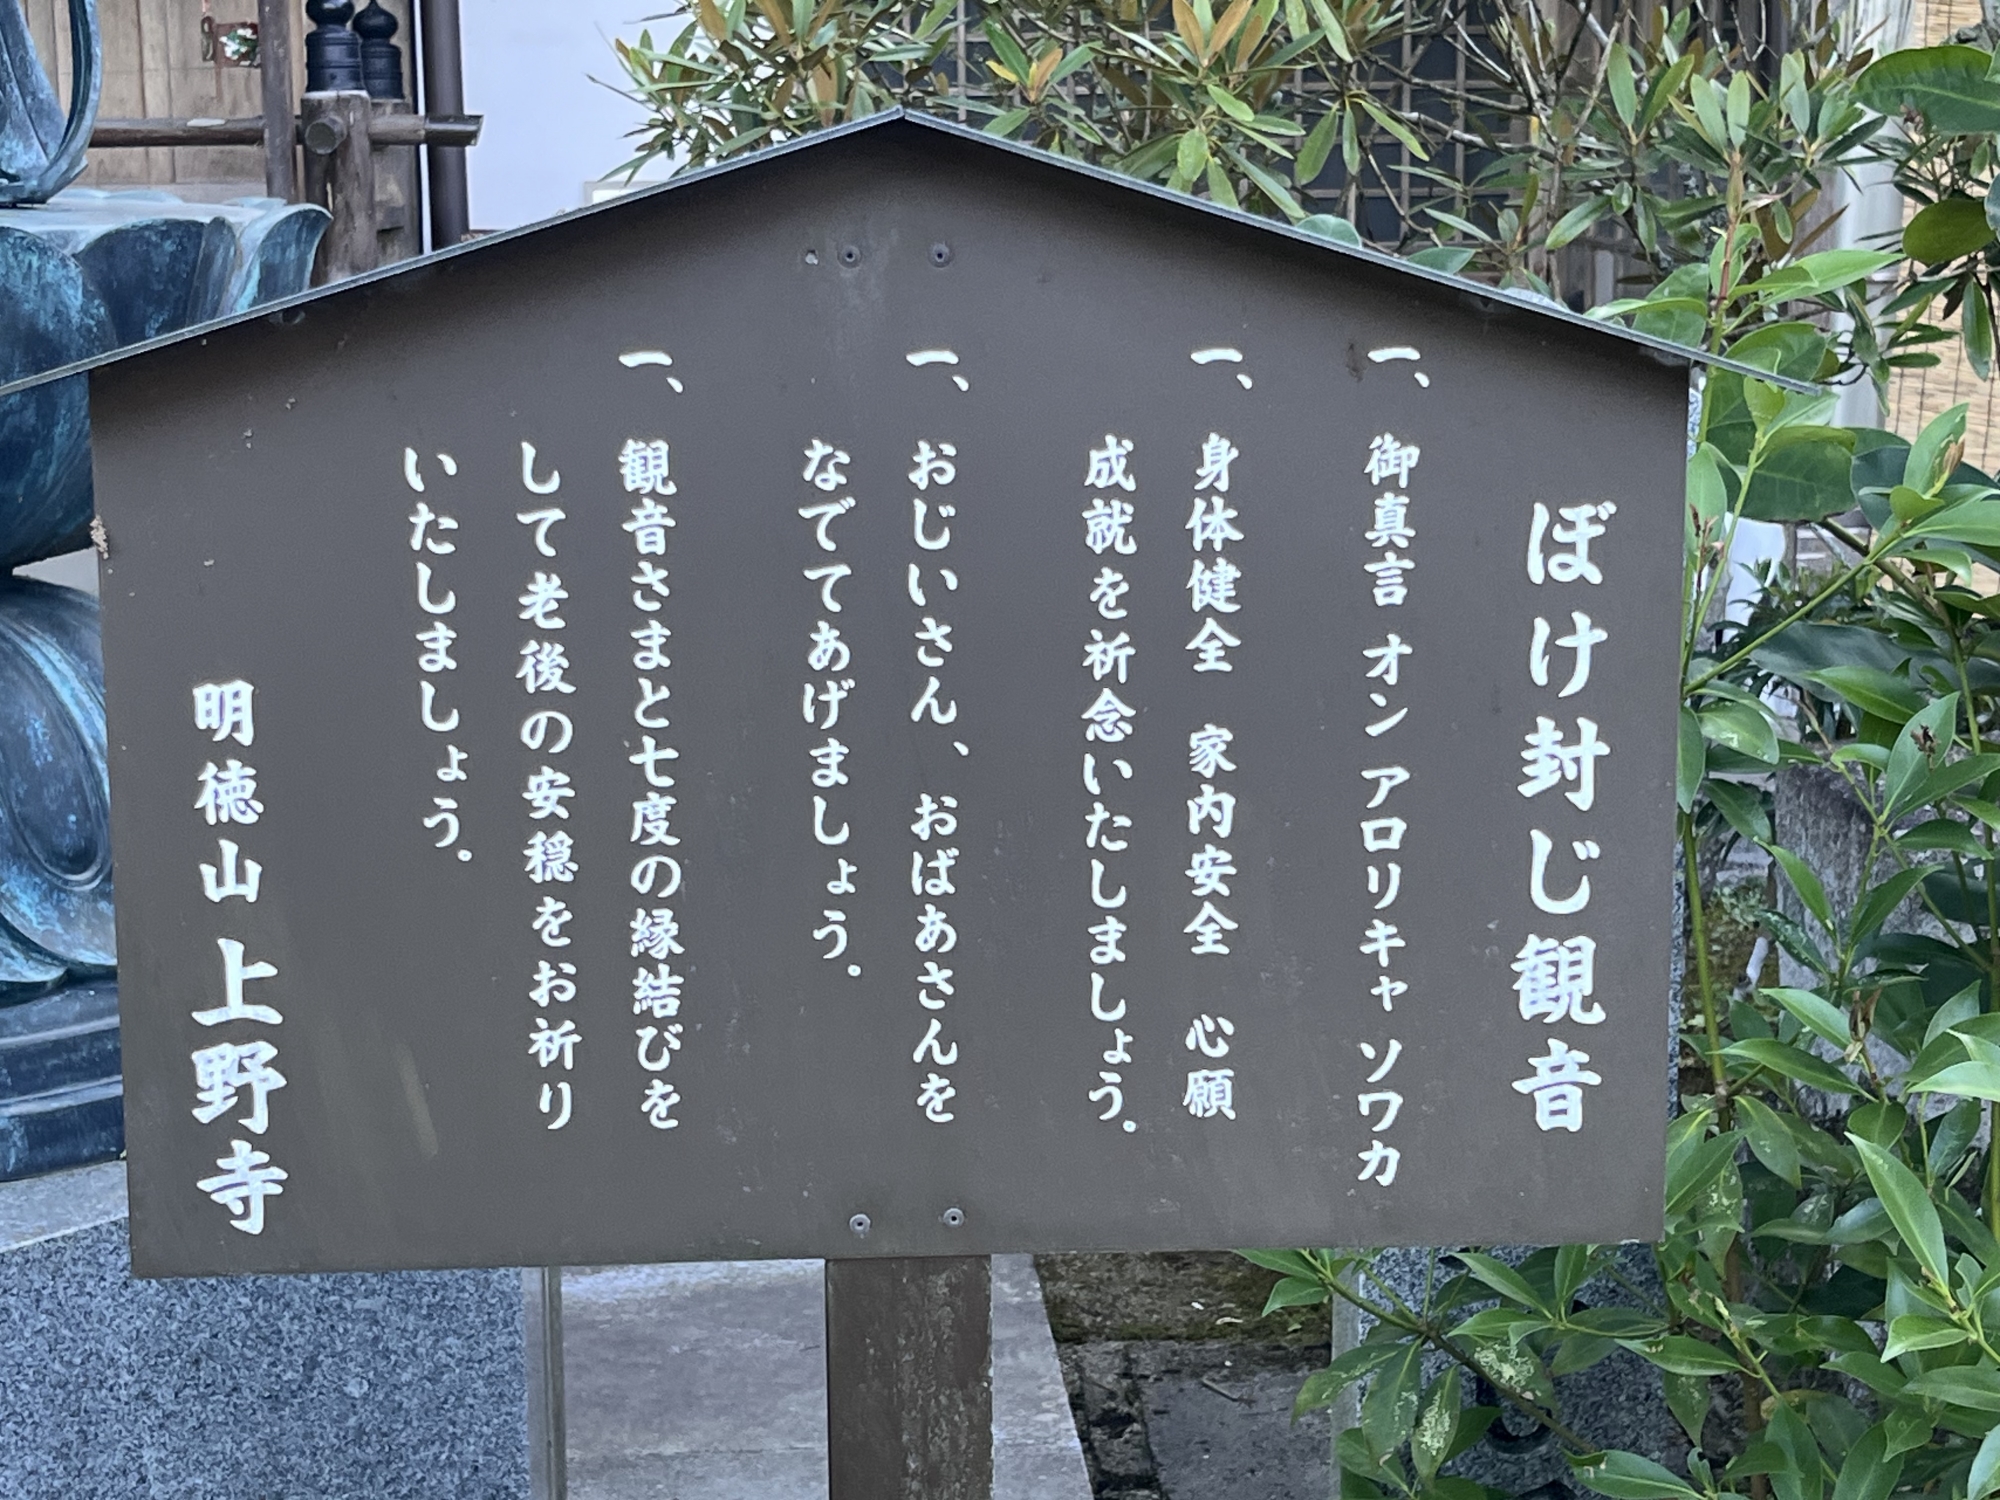 ぼけ封じ観音
一、御真言 オン アロリキャ ソワカ
一、身体健全 家内安全 心願
成就を祈念いたしましょう。
一、おじいさん、おばあさんを
なでてあげましょう。
一、観音さまと七度の縁結びを
して老後の安穏をお祈り
いたしましょう。
明徳山 上野寺